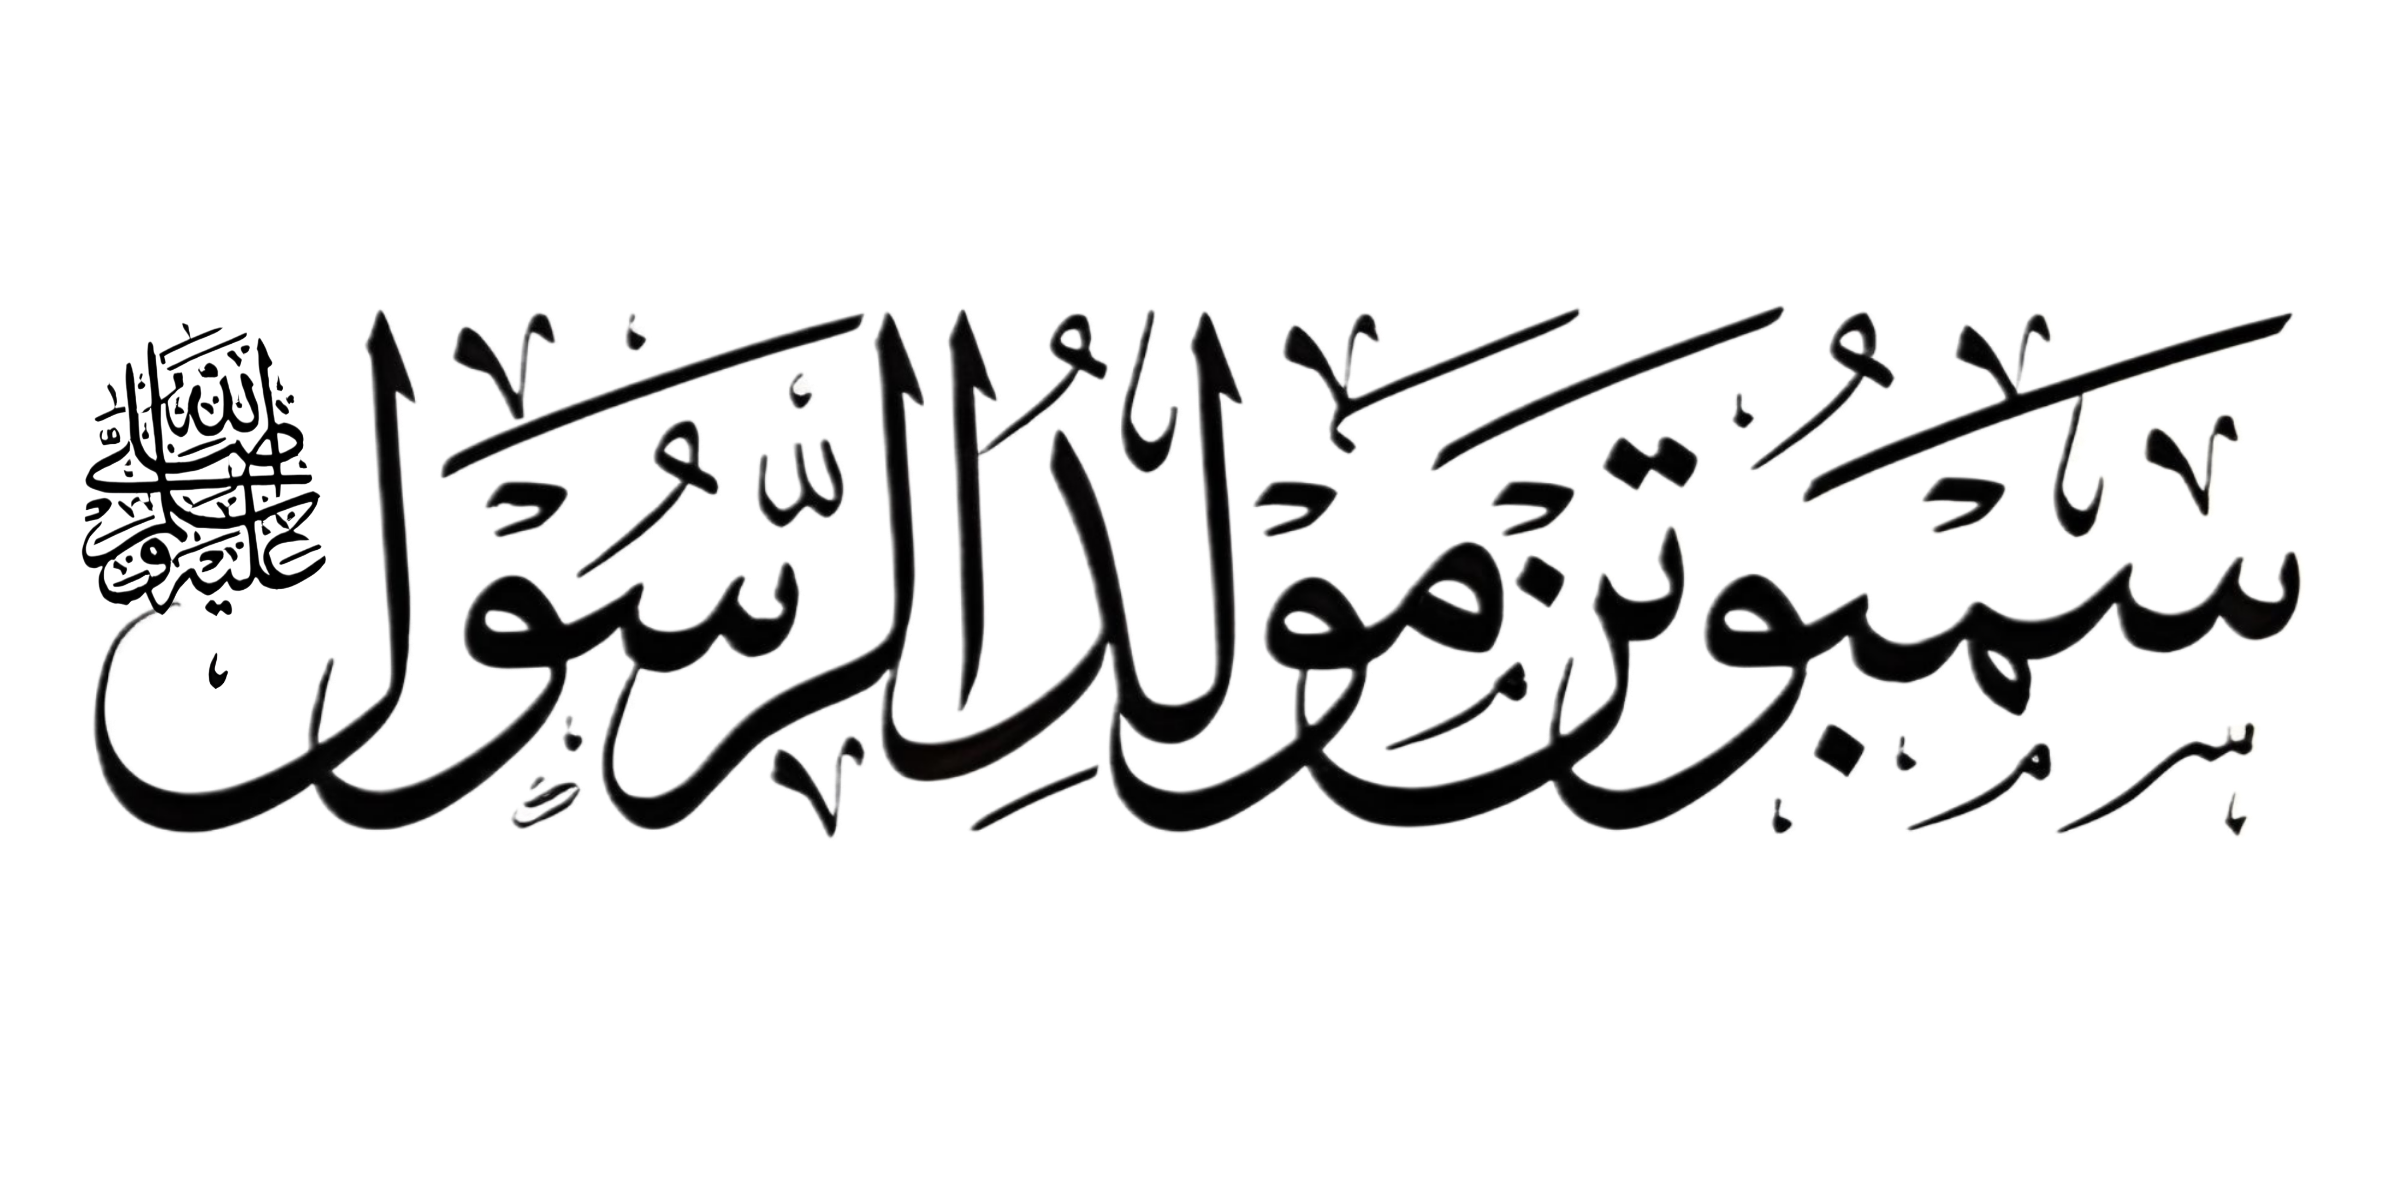 سَمْبُوتَنْ مَوْلِدُ الرَّسُوْل صلى الله عليه وسلم